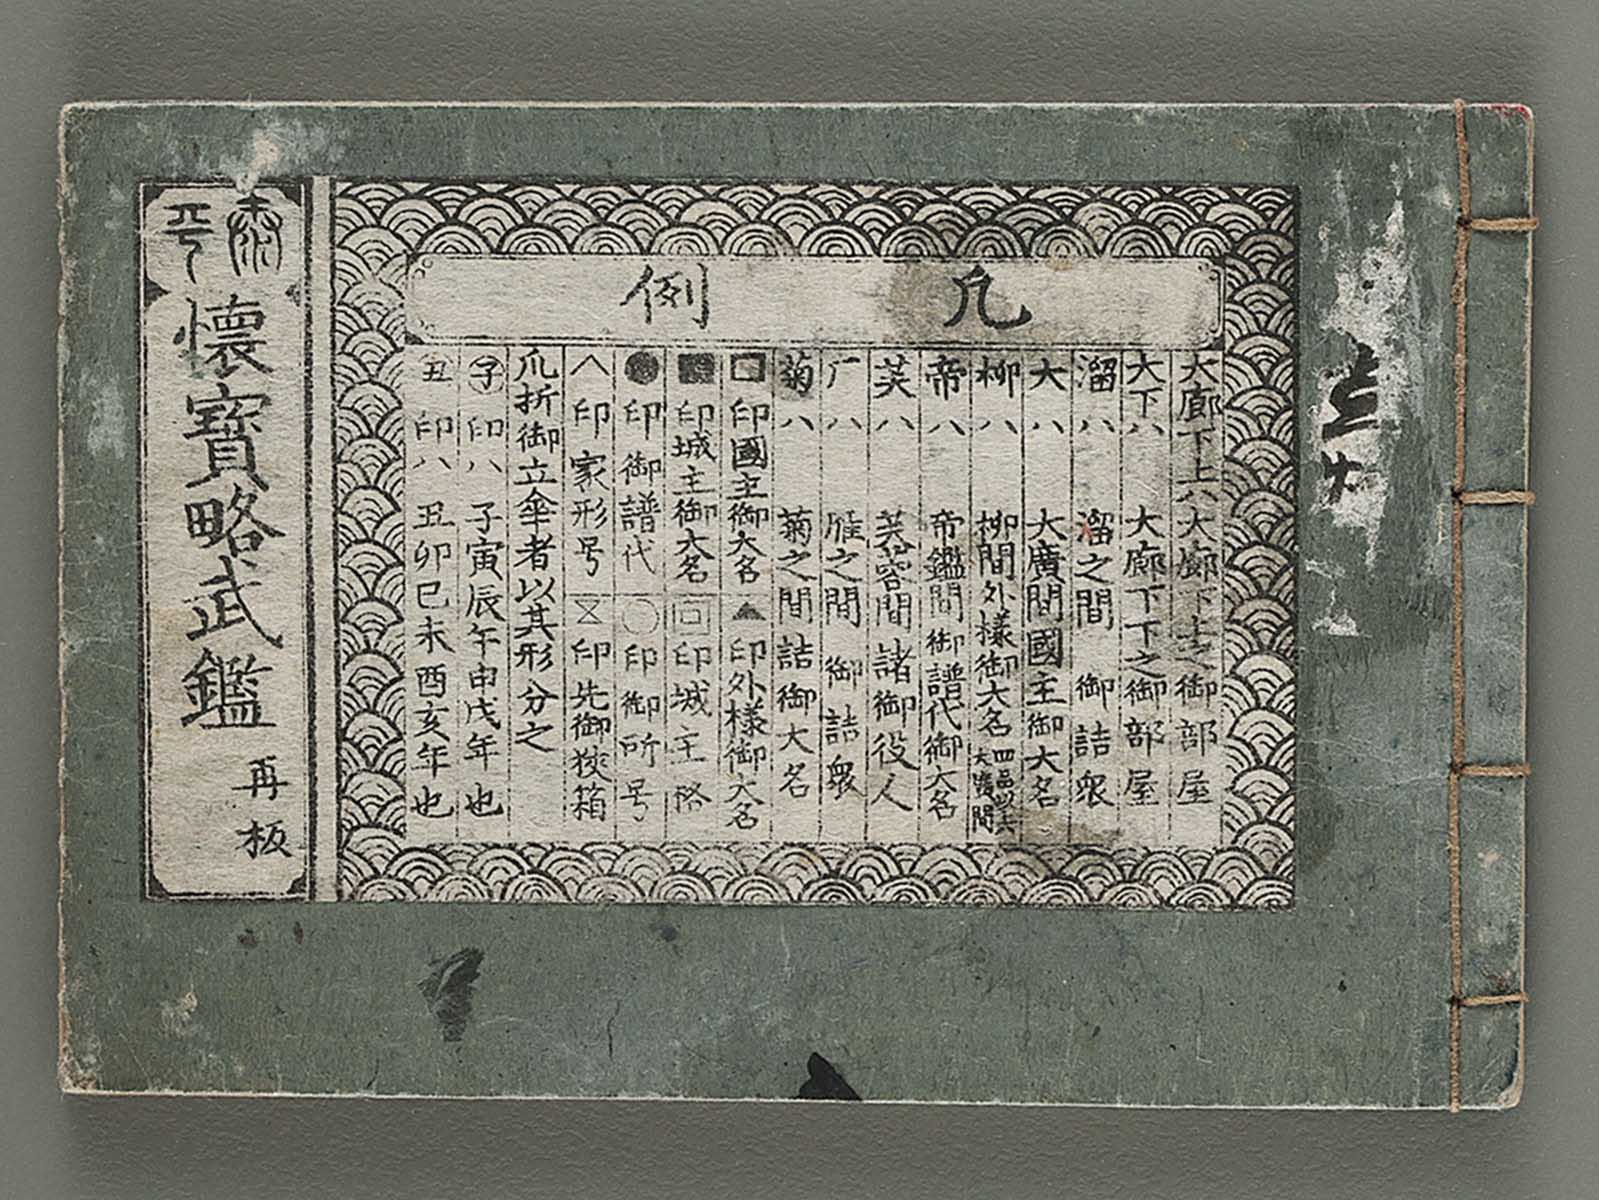 凡例
大廊下上ハ大廊下上之御部屋
大下ハ 大廊下下之御部屋
溜ハ 溜之間 御詰衆
大ハ 大廣間國主御大名
柳ハ 柳間外様御大名
帝ハ 帝鑑間御譜代御大名
芙ハ 芙蓉間諸御役人
厂ハ 雁之間 御詰衆
菊ハ 菊之間詰御大名
印國主御大名 ▲印外様御大名
■印城主御大名 回印城主格
●印御譜代 ○印御所号
へ印家形号 印先御狹箱
爪折御立傘者以其形分之
子印ハ 子寅辰午申戌年也
丑印ハ 丑卯巳未酉亥年也
泰平
懐寶略武鑑 再板